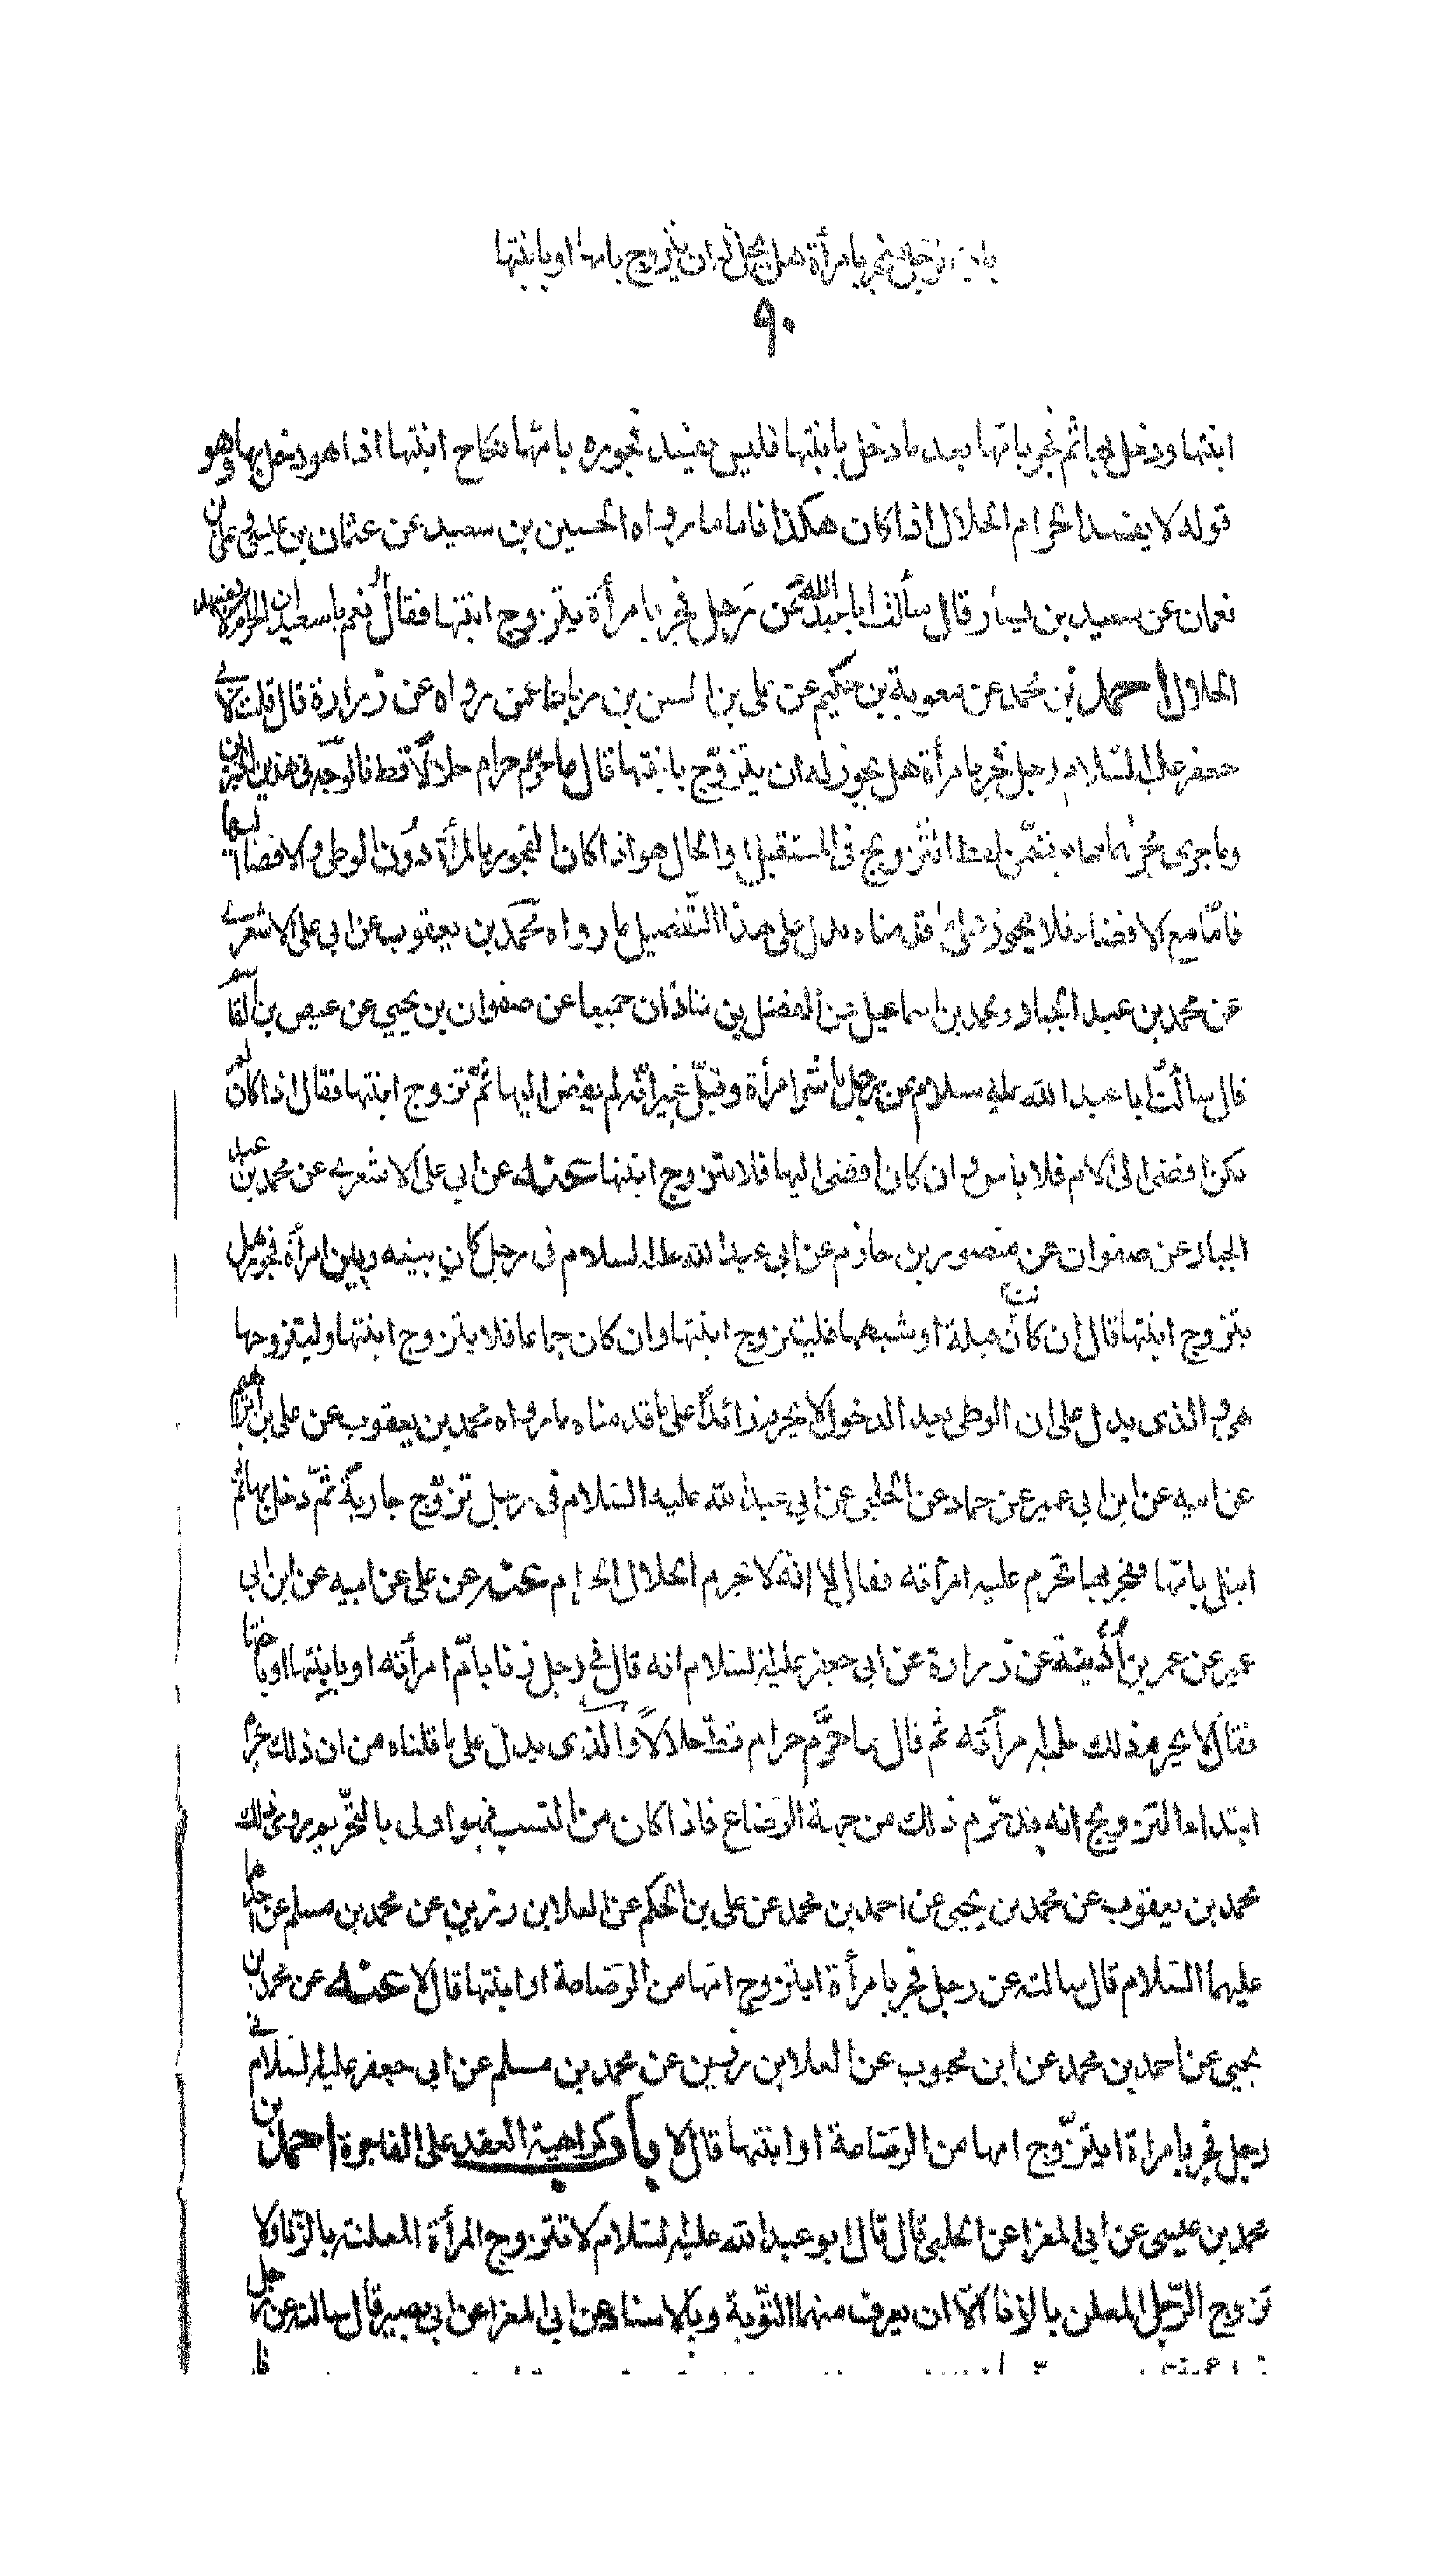 باب الرجل يفجر بامرأة هل يحل له ان يتزوج بامها او بابنتها
٩٠
ابنتها ودخل بها ثم فجر بامها بعد ما دخل بابنتها فليس يفسد فجوره بامها نكاح ابنتها اذا هو دخل بها وهو
قوله لا يفسد الحرام الحلال اذا كان هكذا فاما ما رواه الحسين بن سعيد عن عثمان بن عيسى وعلى بن
نعمان عن سعيد بن يسار قال سألت ابا عبد الله عن رجل فجر بامرأة يتزوج ابنتها فقال نعم يا سعيد ان الحرام لا يفسد
الحلال احمد بن محمد عن معوية بن حكيم عن على بن الحسن بن رباط عمن رواه عن زرارة قال قلت لابي
جعفر عليه السلام رجل فجر بامرأة هل يجوز له ان يتزوج بابنتها قال ما حرم حرام حلالا قط فالوجه في هذين الخبرين
وما جرى مجراهما مما يتضمن لفظ التزويج في المستقبل او الحال هو اذا كان الفجور بالمرأة دون الوطى والافضاء اليها
فاما مع الافضاء فلا يجوز على ما قدمناه يدل على هذا التفصيل ما رواه محمد بن يعقوب عن ابي على الاشعري
عن محمد بن عبد الجبار ومحمد بن اسماعيل عن الفضل بن شاذان جميعا عن صفوان بن يحيى عن عيص بن القاسم
قال سالت ابا عبد الله عليه سلام عن رجل باشر امرأة وقبل غير انه لم يفض اليها ثم تزوج ابنتها فقال اذا كان لم
يكن افضى الى الام فلا باس وان كان افضى اليها فلا يتزوج ابنتها عنه عن ابي على الاشعري عن محمد بن عبد
الجبار عن صفوان عن منصور بن حازم عن ابي عبد الله عليه السلام في رجل كان بينه وبين امرأة فجور هل
يتزوج ابنتها قال ان كانت قبلة او شبهها فليتزوج ابنتها وان كان جماعا فلا يتزوج ابنتها وليتزوجها
هي والذي يدل على ان الوطى بعد الدخول لا يحرم زائدا على ما قدمناه ما رواه محمد بن يعقوب عن على بن ابراهيم
عن ابيه عن ابن ابي عمير عن حماد عن الحلبي عن ابي عبد الله عليه السلام في رجل تزوج جارية ثم دخل بها ثم
ابتلى بامها ففجر بها اتحرم عليه امرأته فقال لا انه لا يحرم الحلال الحرام عنه عن على عن ابيه عن ابن ابي
عمير عن عمر بن أذينة عن زرارة عن ابي جعفر عليه السلام انه قال في رجل زنا بام امرأته او بابنتها او باختها
فقال لا يحرم ذلك عليه امرأته ثم قال ما حرم حرام قط حلالا والذي يدل على ما قلناه من ان ذلك يحرم
ابتداء التزويج انه قد حرم ذلك من جهة الرضاع فاذا كان من النسب فهو اولى بالتحريم روى ذلك
محمد بن يعقوب عن محمد بن يحيى عن احمد بن محمد عن على بن الحكم عن العلا بن رزين عن محمد بن مسلم عن احدهما
عليهما السلام قال سالته عن رجل فجر بامرأة ايتزوج امها من الرضاعة او ابنتها قال لا عنه عن محمد بن
يحيى عن احمد بن محمد عن ابن محبوب عن العلا بن رزين عن محمد بن مسلم عن ابي جعفر عليه السلام في
رجل فجر بامراة ايتزوج امها من الرضاعة او ابنتها قال لا باب كراهية العقد على الفاجرة احمد بن
محمد بن عيسى عن ابي المغرا عن الحلبي قال قال ابو عبد الله عليه السلام لا تتزوج المرأة المعلنة بالزنا ولا
تزوج الرجل المعلن بالزنا الا ان يعرف منهما التوبة وبالاسناد عن ابي المغرا عن ابي بصير قال سالته عن رجل